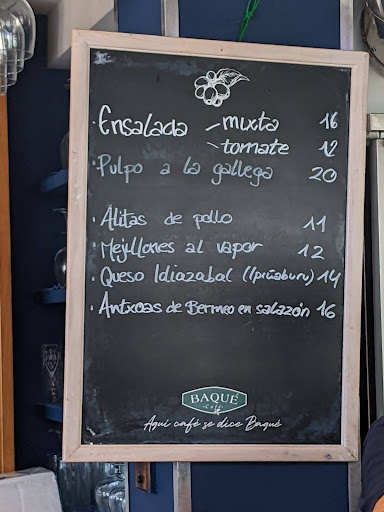 · Ensalada - mixta 16
- tomate 12
· Pulpo a la gallega 20
· Alitas de pollo 11
· Mejillones al vapor 12
· Queso Idiazabal (Ipiñaburu) 14
· Antxoas de Bermeo en salazón 16
BAQUÉ
Café
Aquí café se dice Baqué